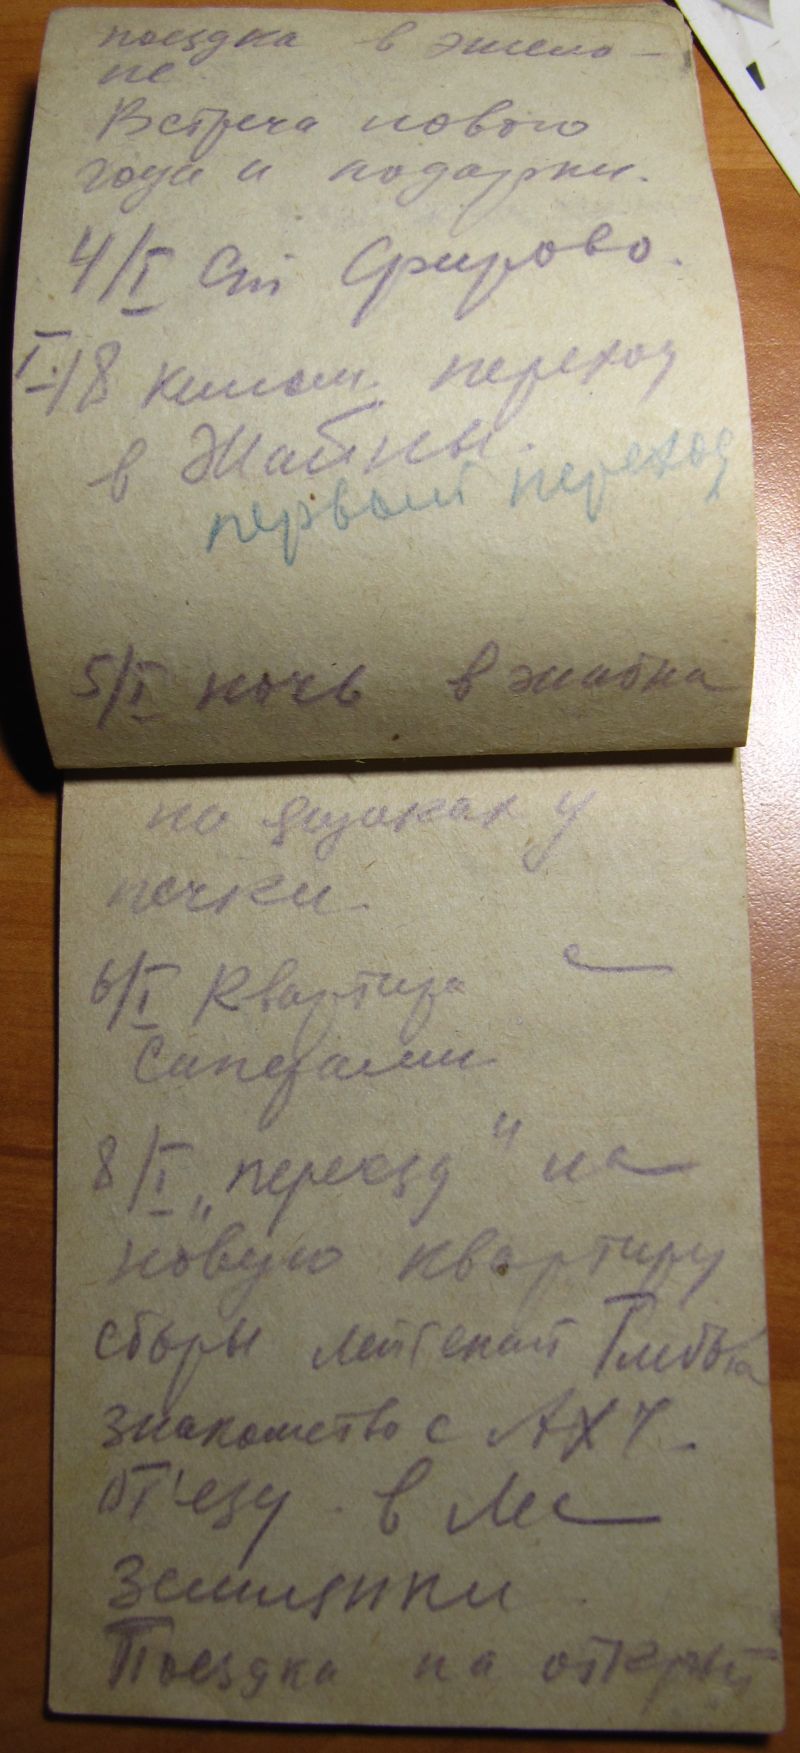 поездка в эшело-
не.
Встреча нового
года и подарки.
4/I Ст Фирово.
I-18 килом. переход
в Жабны.
первый переход
5/I ночь в Жабна
на ящиках у
печки.
6/I Квартира с
Саперами
8/I „переезд" на
новую квартиру
сборы лейтенант
знакомство с АХЧ.
от'езд в лес
Землянки
Поездка на открыт